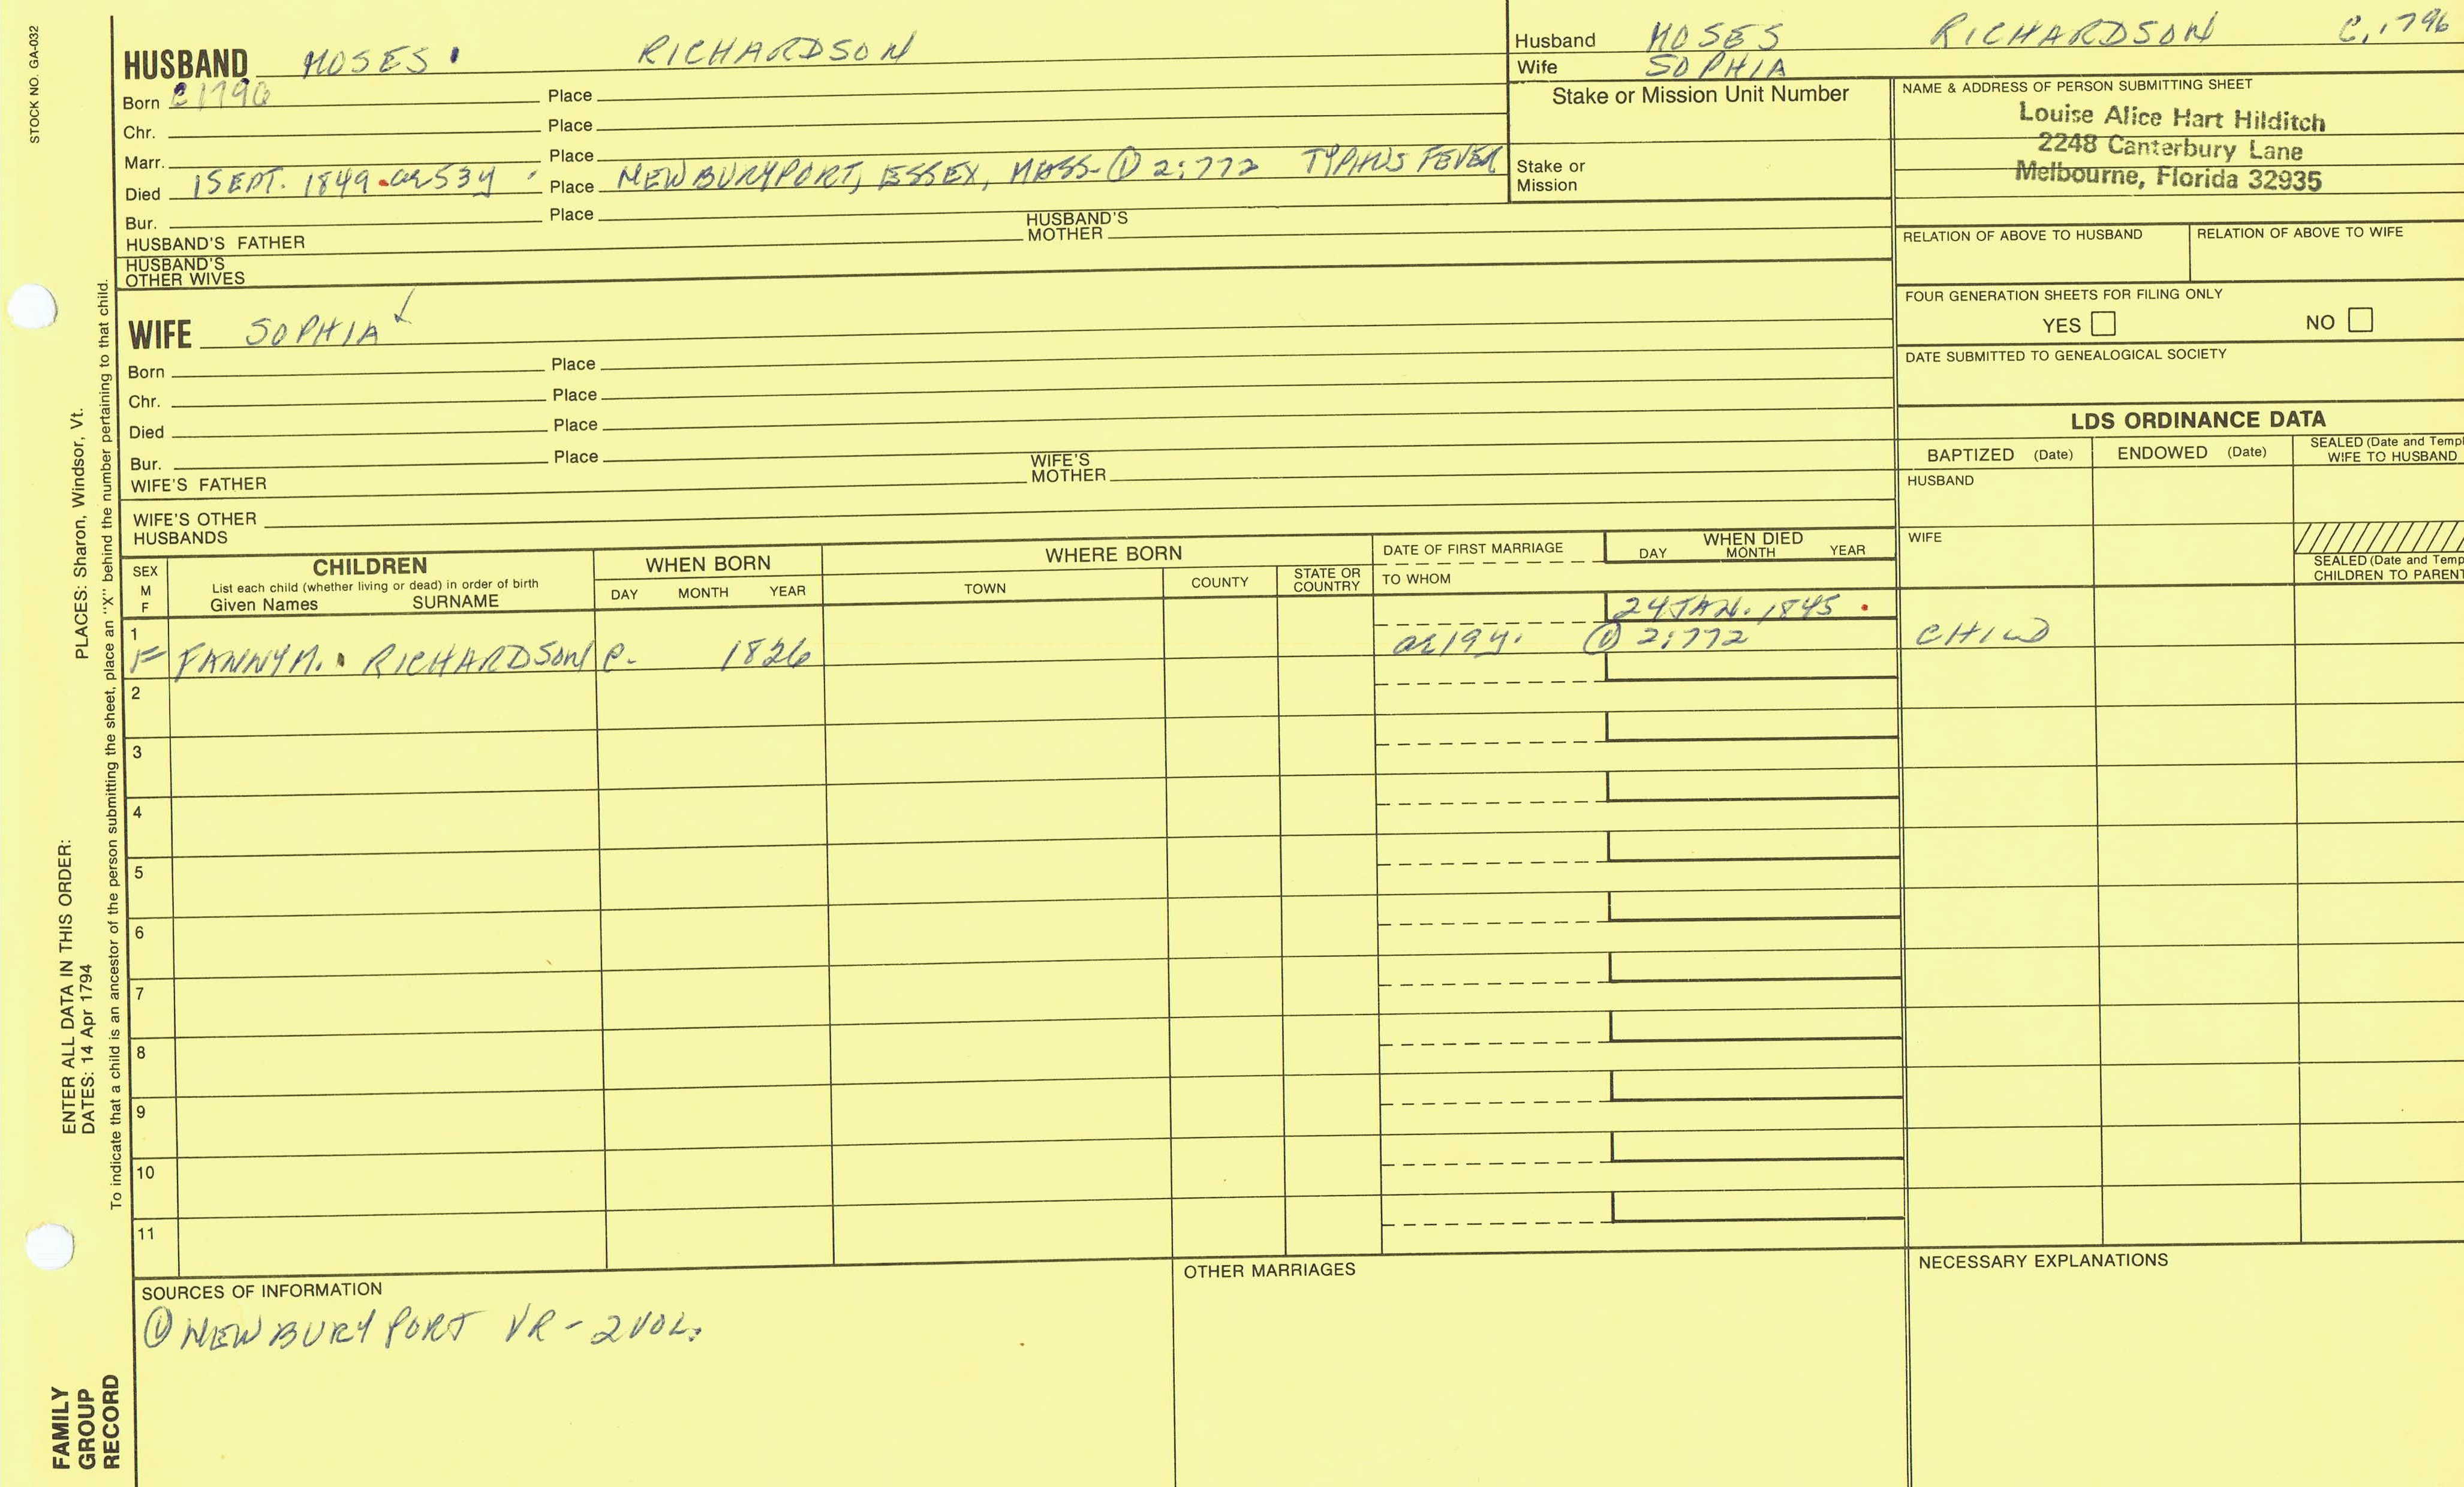 STOCK NO. GA-032
HUSBAND MOSES RICHARDSON
Born C1796 Place
Chr. Place
Marr. Place
Died 1 SEPT. 1849. ae 53y Place NEWBURYPORT, ESSEX, MASS. ① 2:772 TYPHUS FEVER
Bur. Place
HUSBAND'S FATHER HUSBAND'S MOTHER
HUSBAND'S OTHER WIVES
Husband MOSES RICHARDSON C. 1796
Wife SOPHIA
Stake or Mission Unit Number
Stake or Mission
NAME & ADDRESS OF PERSON SUBMITTING SHEET
Louise Alice Hart Hilditch
2248 Canterbury Lane
Melbourne, Florida 32935
RELATION OF ABOVE TO HUSBAND RELATION OF ABOVE TO WIFE
FOUR GENERATION SHEETS FOR FILING ONLY
YES NO
DATE SUBMITTED TO GENEALOGICAL SOCIETY
WIFE SOPHIA
Born Place
Chr. Place
Died Place
Bur. Place
WIFE'S FATHER WIFE'S MOTHER
WIFE'S OTHER HUSBANDS
LDS ORDINANCE DATA
BAPTIZED (Date) ENDOWED (Date) SEALED (Date and Templ
WIFE TO HUSBAND
HUSBAND
WIFE
SEALED (Date and Temp
CHILDREN TO PARENT
SEX
M
F
CHILDREN
List each child (whether living or dead) in order of birth
Given Names SURNAME
WHEN BORN
DAY MONTH YEAR
WHERE BORN
TOWN COUNTY STATE OR COUNTRY
DATE OF FIRST MARRIAGE
TO WHOM
WHEN DIED
DAY MONTH YEAR
24 JAN. 1845
1
F FANNY M. RICHARDSON C. 1826 ae 19y. ① 2:772 CHILD
2
3
4
5
6
7
8
9
10
11
SOURCES OF INFORMATION
① NEWBURYPORT VR - 2 VOL.
OTHER MARRIAGES
NECESSARY EXPLANATIONS
ENTER ALL DATA IN THIS ORDER:
DATES: 14 Apr 1794 PLACES: Sharon, Windsor, Vt.
To indicate that a child is an ancestor of the person submitting the sheet, place an "X" behind the number pertaining to that child.
FAMILY
GROUP
RECORD